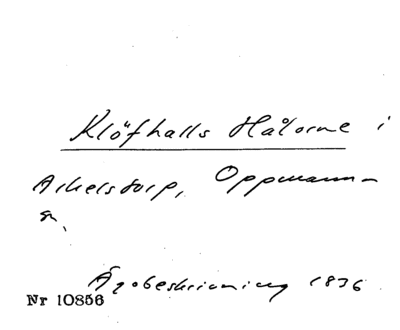 Klöfhalls Hålorne i
Arkelstorp, Oppmann-
a.
Ägobeskrivning 1836
Nr 10856